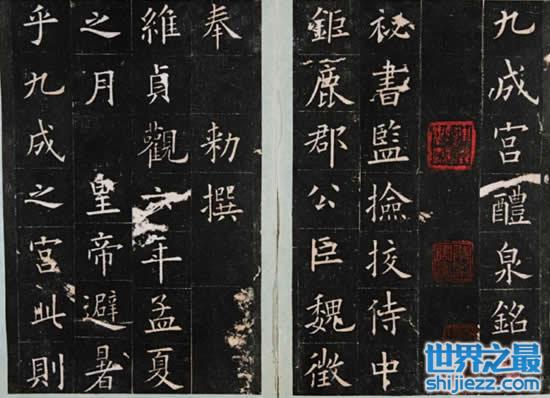 九成宮醴泉銘
祕書監撿挍侍中
鉅鹿郡公臣魏徵
奉 勅撰
維貞觀六年孟夏
之月 皇帝避暑
乎九成之宮此則
世界之最
shijiezz.com